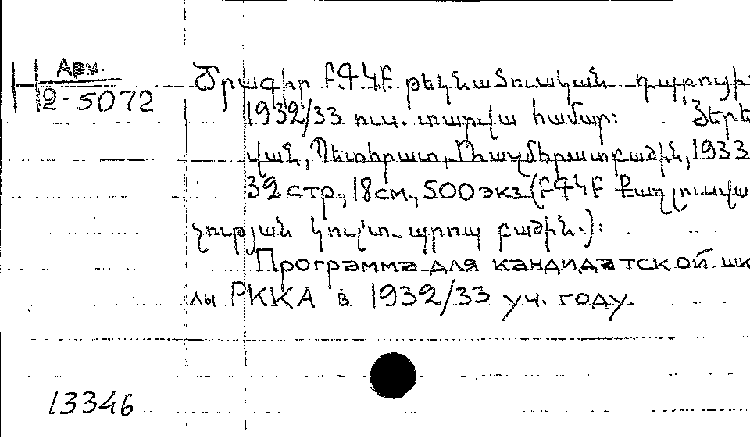 Арм.
2-5072
Ծրագիր ԲԳԿԲ թեկնածուական դպրոցի
1932/33 ուս. տարվա համար: Յերե
վան, Պետհրատ, Ռազմհրատբաժին, 1933
32 стр., 18 см., 500 экз. (ԲԳԿԲ Քաղլուսվա
չության կուլտ-պրոպ բաժին.):
Программа для кандидатской шк
лы РККА в 1932/33 уч. году.
13346